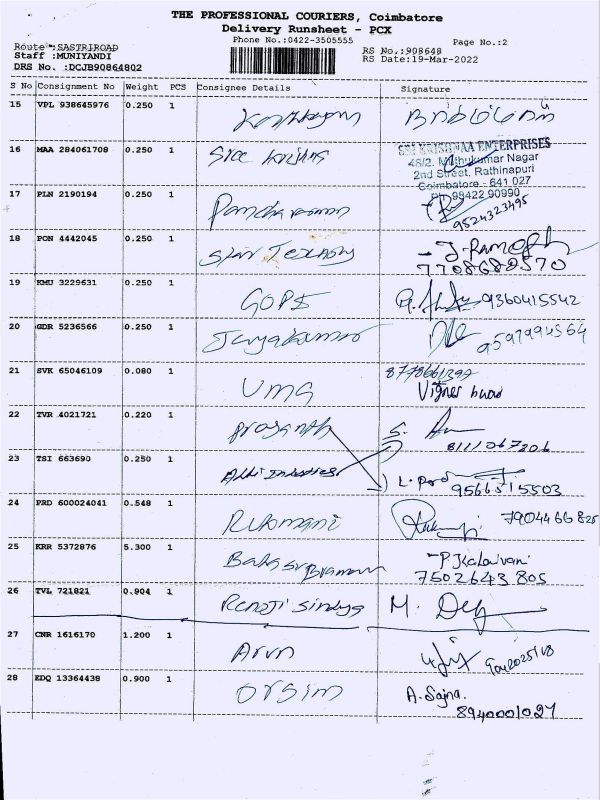 THE PROFESSIONAL COURIERS, Coimbatore
Delivery Runsheet - PCX
Phone No.:0422-3505555
Page No.:2
Route :SASTRIROAD
Staff :MUNIYANDI
DRS No. :DCJB90864802
RS No.:908648
RS Date:19-Mar-2022
S No Consignment No Weight PCS Consignee Details Signature
15 VPL 938645976 0.250 1
16 MAA 284061708 0.250 1 Sree krishna
SRI KRISHNAA ENTERPRISES
46/2, Muthukumar Nagar
2nd Street, Rathinapuri
Coimbatore - 641 027
Ph: 98422 90990
17 PLN 2190194 0.250 1
9524323495
18 PON 4442045 0.250 1
7708688570
19 KMU 3229631 0.250 1 GOPI 9360415542
20 GDR 5236566 0.250 1 Jeyakumar
21 SVK 65046109 0.080 1 UMA
22 TVR 4021721 0.220 1 prasanth
8111067206
23 TSI 663690 0.250 1 Athi Industries
9566515503
24 PRD 600024041 0.548 1 Rukmani
25 KRR 5372876 5.300 1 Balasubramani P. Kalaivani
7502643805
26 TVL 721821 0.904 1
27 CNR 1616170 1.200 1 Arun
28 EDQ 13364438 0.900 1 A. Sajna.
8940001027